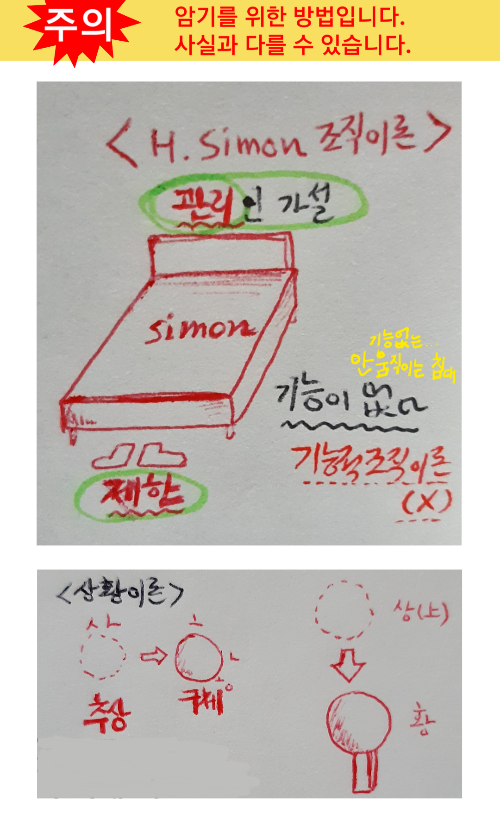 주의
암기를 위한 방법입니다.
사실과 다를 수 있습니다.
< H. Simon 조직이론 >
관리인 가설
simon
기능없는
안움직이는 침대
기능이 없다
기능적조직이론
(X)
제한
<상황이론>
추상
구체
상(上)
황